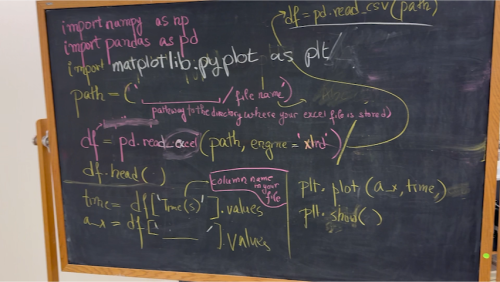 df = pd.read_csv(path)
import numpy as np
import pandas as pd
import matplotlib.pyplot as plt
path = (________/file name)
pathway to the directory where your excel file is stored)
df = pd.read_excel(path, engine='xlrd')
df.head()
column name in your file
time = df['Time(s)'].values
a_x = df['______'].values
plt.plot(a_x, time,)
plt.show()